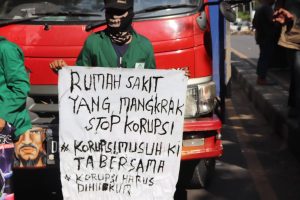 RUMAH SAKIT
YANG MANGKRAK
STOP KORUPSI
# KORUPSI MUSUH KI
TA BERSAMA
# KORUPSI HARUS
DIHUKUM